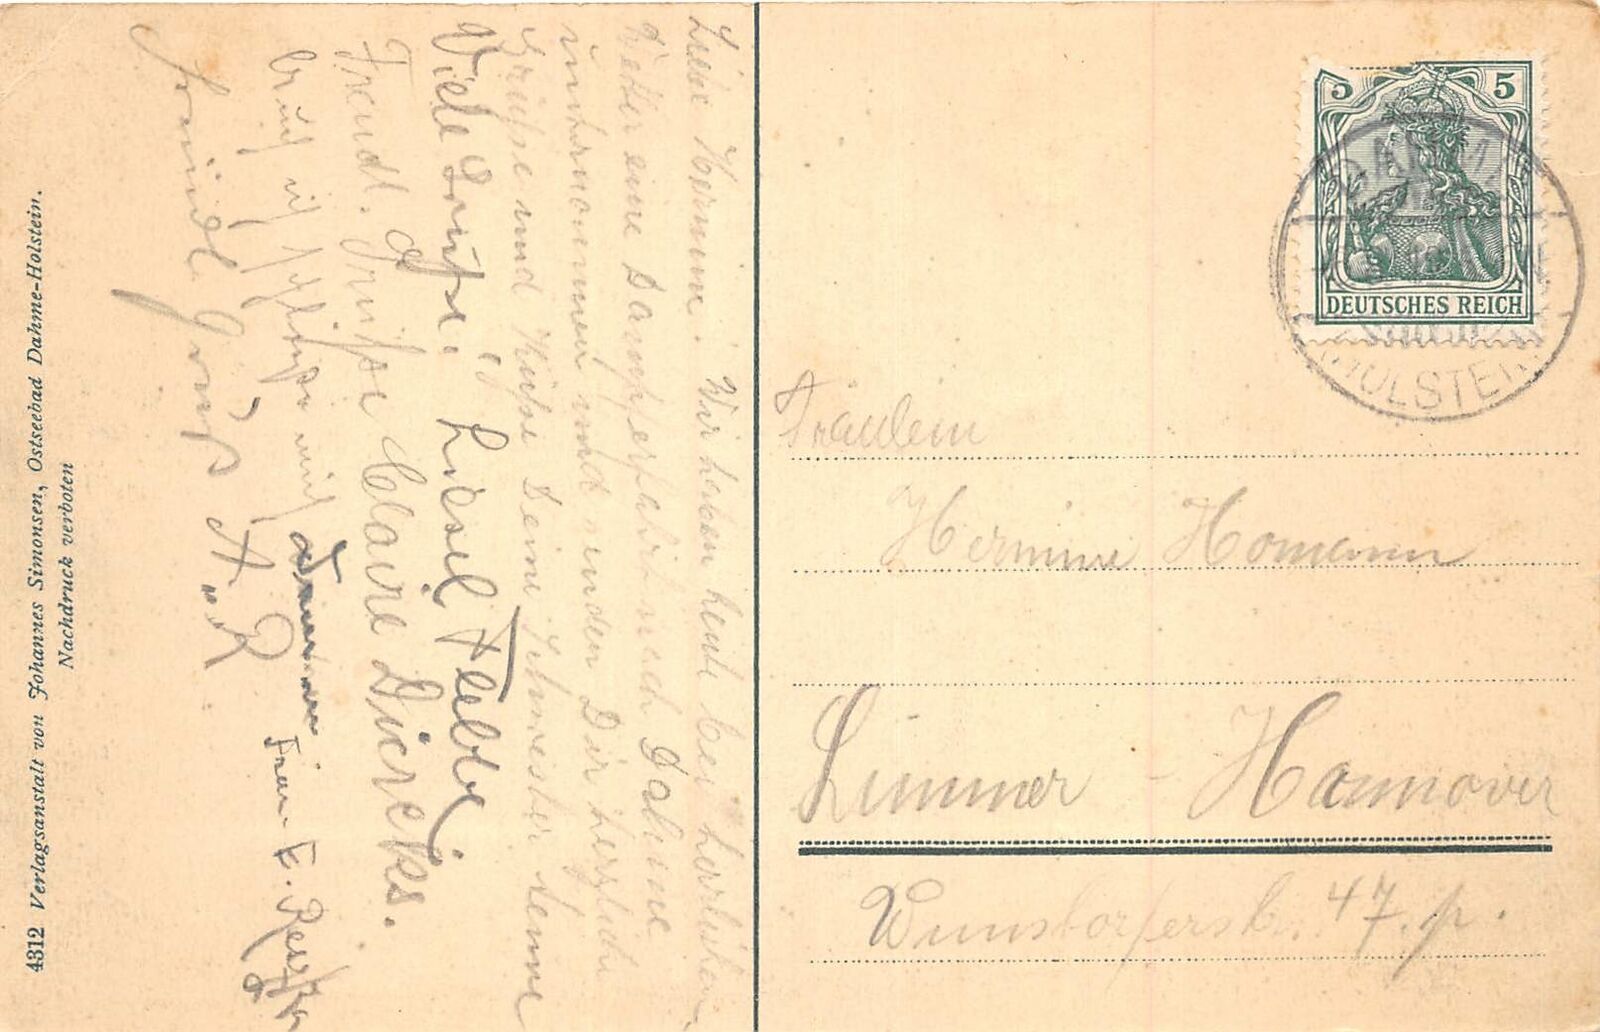 Liebe Hermine! Wir haben heute bei herrlichem
Wetter eine Dampferfahrt nach Dahme
unternommen und senden Dir herzliche
Grüsse und Küsse Deine Schwester Henne
Viele Grüße! Liesel Flebbe
Freudl. Grüße Claire Diercks.
Auch ich schließe mich
Frau E.
freundl. Gruß A. R.
4312 Verlagsanstalt von Johannes Simonsen, Ostseebad Dahme-Holstein.
Nachdruck verboten
5 5
DEUTSCHES REICH
DAHME
HOLSTEIN
Fräulein
Hermine Homann
Limmer - Hannover
Wunstorferstr. 47. p.